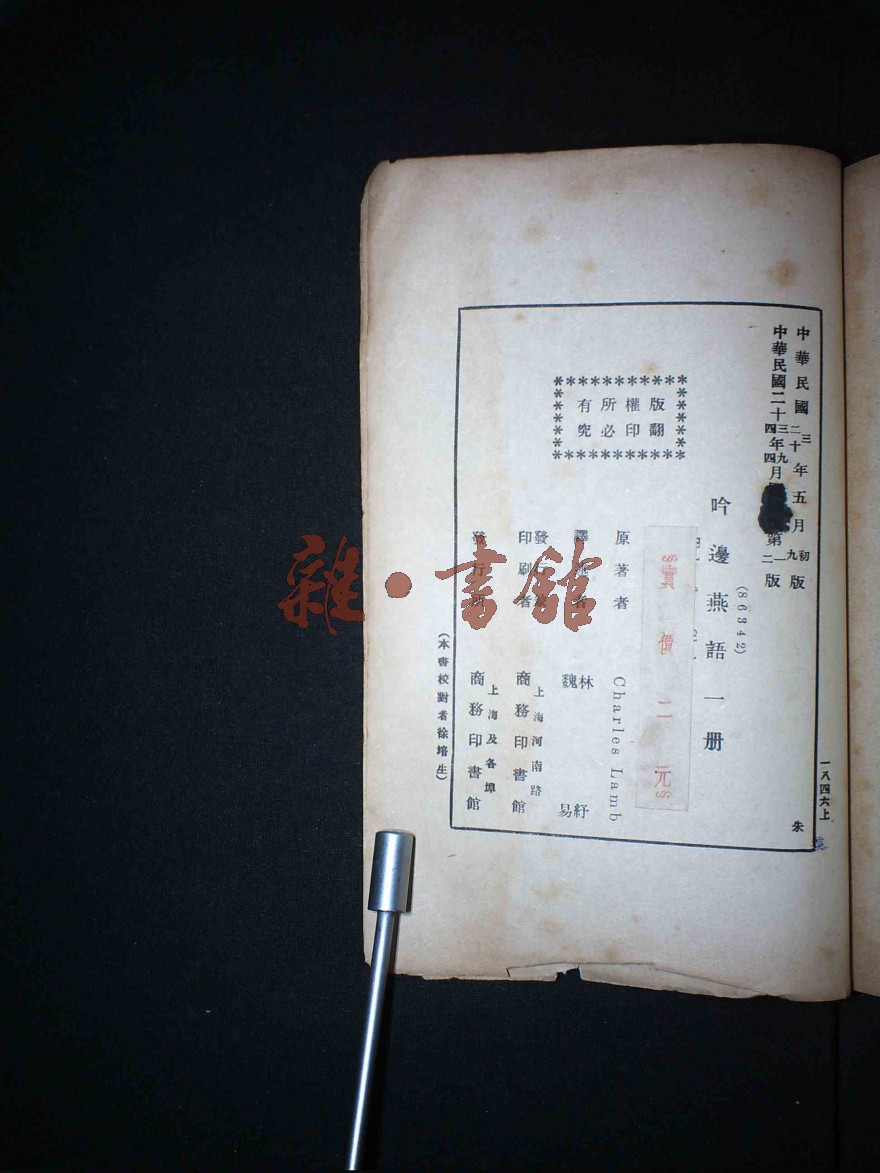 一八四六上
朱
中華民國三二十年五月初九版
中華民國二十三四年九四月第一二版
(86342)
吟邊燕語一册
§實價二元§
原著者 Charles Lamb
譯述者 林紓 魏易
發行兼印刷者 上海河南路 商務印書館
發行所 上海及各埠 商務印書館
(本書校對者徐培生)
版權所有
翻印必究
雜·書館